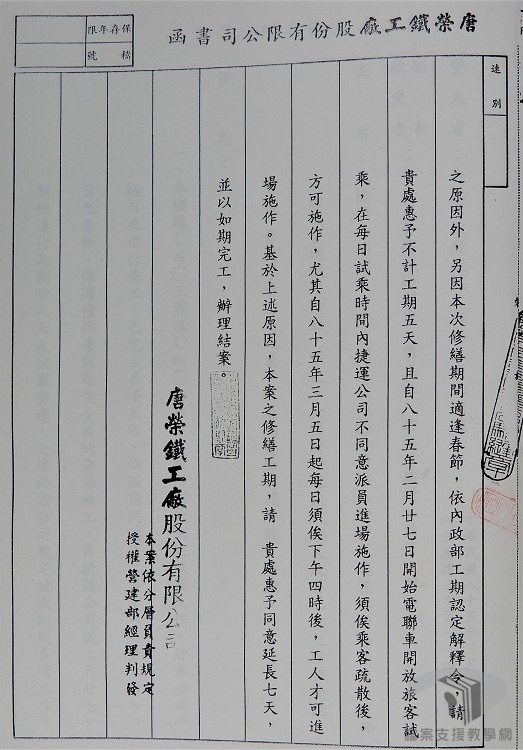 唐榮鐵工廠股份有限公司書函
保存年限
檔號
速別
之原因外，另因本次修繕期間適逢春節，依內政部工期認定解釋令，請
貴處惠予不計工期五天，且自八十五年二月廿七日開始電聯車開放旅客試
乘，在每日試乘時間內捷運公司不同意派員進場施作，須俟乘客疏散後，
方可施作，尤其自八十五年三月五日起每日須俟下午四時後，工人才可進
場施作。基於上述原因，本案之修繕工期，請　貴處惠予同意延長七天，
並以如期完工，辦理結案
唐榮鐵工廠股份有限公司
本案依分層負責規定
授權營建部經理判發
騎縫章
檔案支援教學網